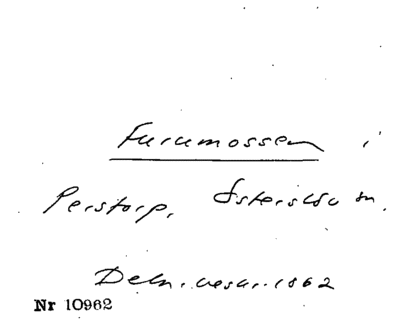 Furumossen i
Perstorp, Österslöv sn.
Deln. beskr. 1862
Nr 10962